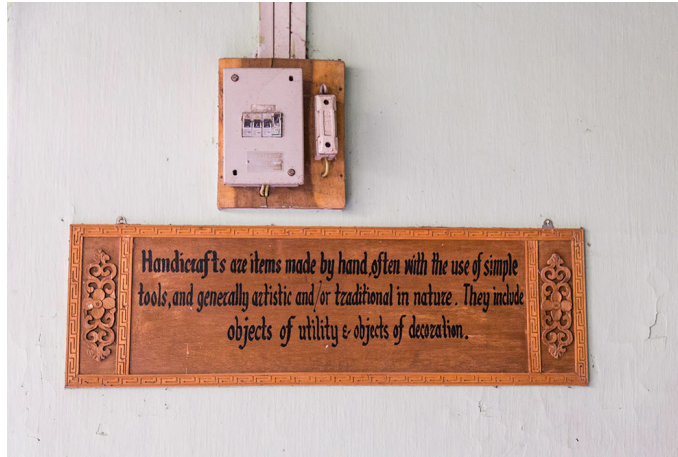 Handicrafts are items made by hand, often with the use of simple
tools, and generally artistic and/or traditional in nature. They include
objects of utility & objects of decoration.